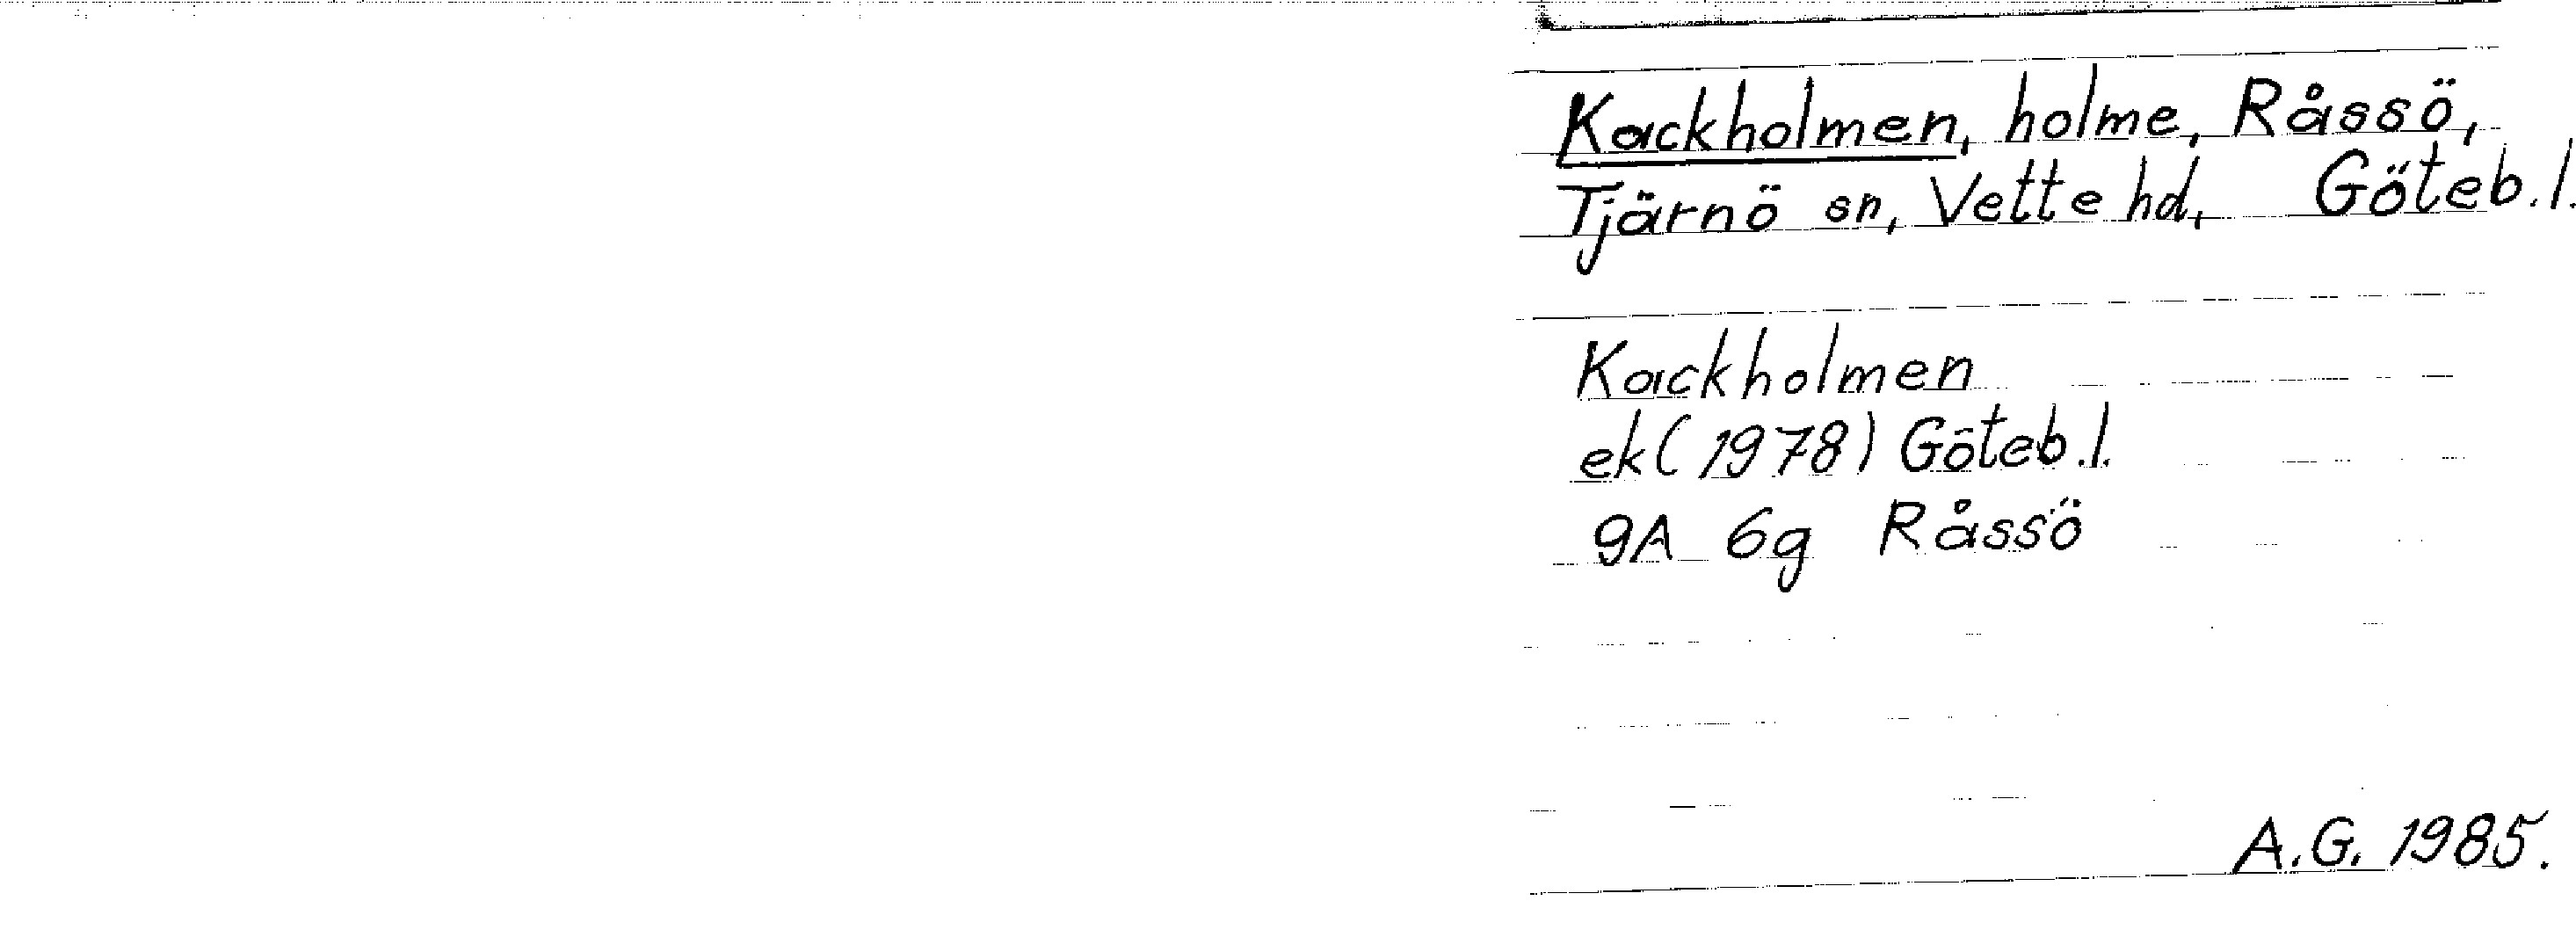 Kackholmen, holme, Råssö,
Tjärnö sn, Vette hd, Göteb.l.
Kackholmen
ek (1978) Göteb.l.
9A 6g Råssö
A.G. 1985.